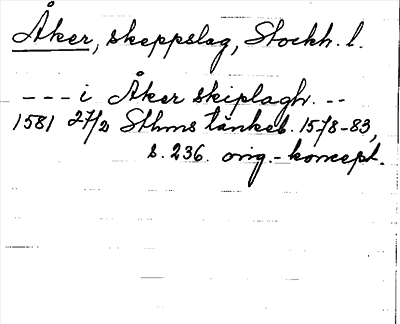 Åker, skeppslag, Stockh. l.
--- i Åker skiplagh. --
1581 27/2 Sthms tänkeb. 1578-83,
s. 236. orig.-koncept.